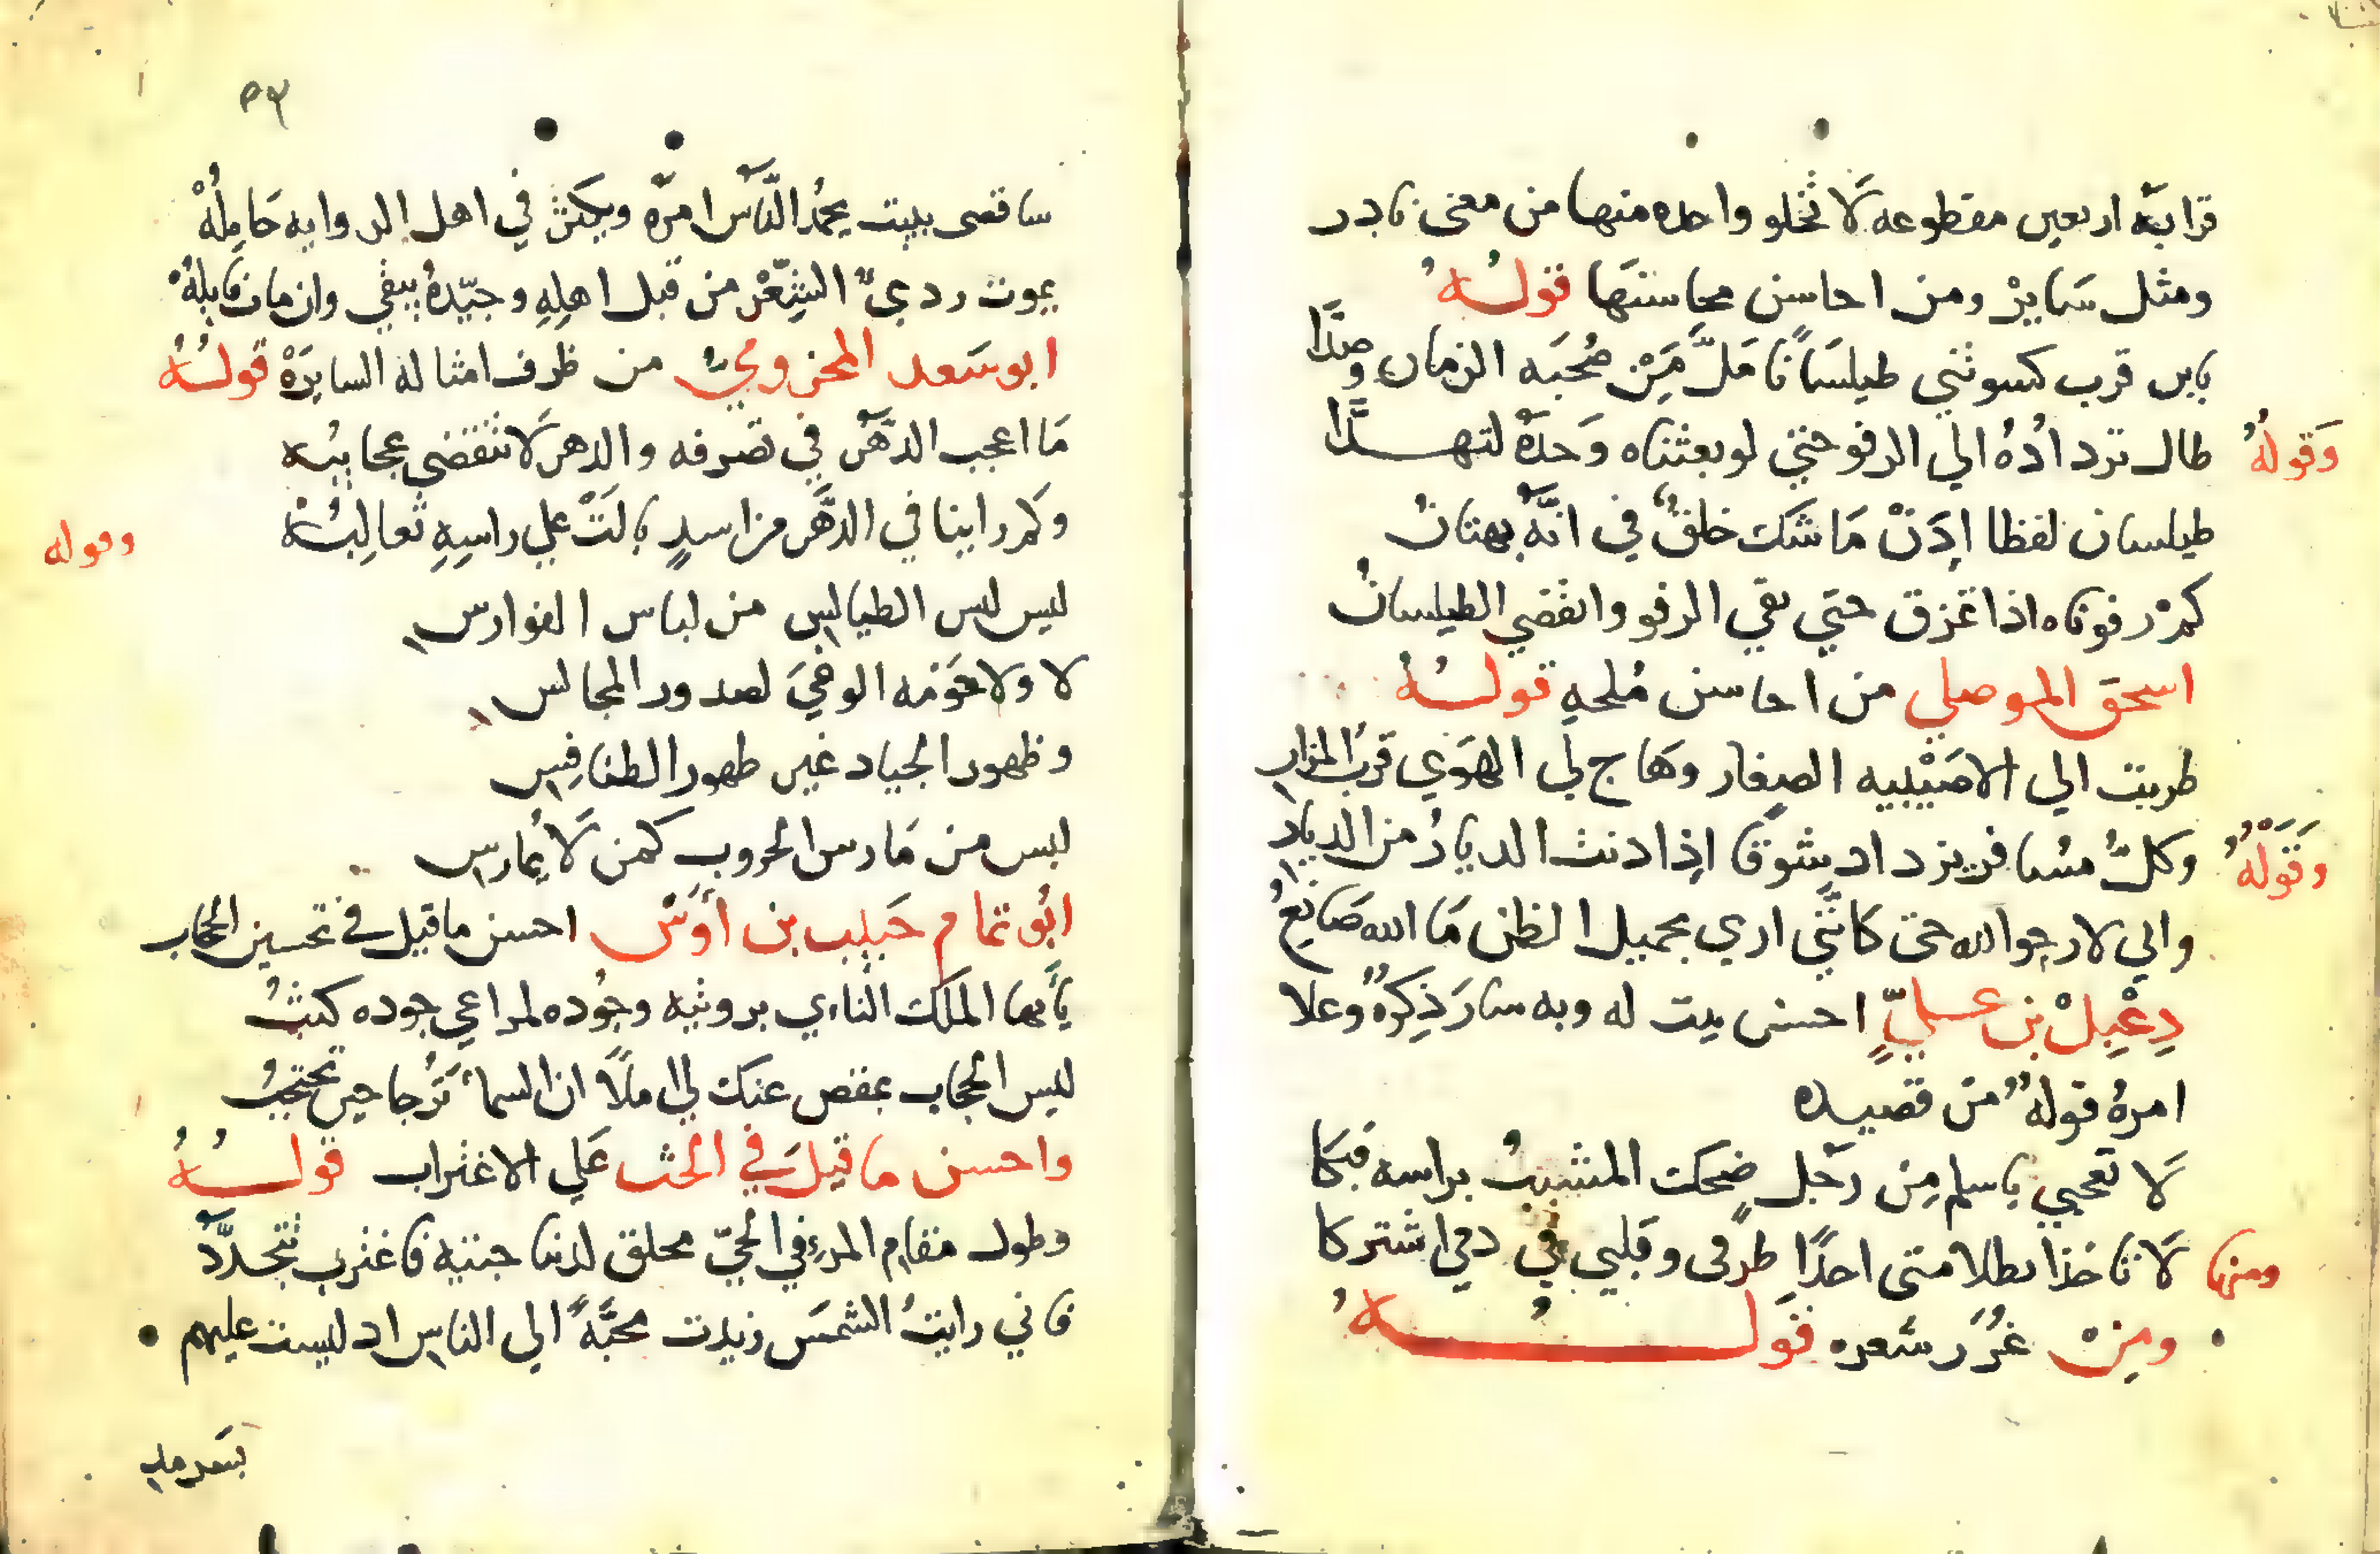 قرابة اربعين مقطوعه لَا تخلو واحده منها من معنى نادر
ومثل سَايرْ ومن احاسن محاسنهَا قولُهُ
يابن قرب كسوتني طيلسَانًا مَلَّ مِنْ صُحبَه الزمان وصدَّا
وَقولُهُ طال تردادُهُ الي الرفو حتي لو بعثناه وَحدَهُ لتهدَّا
طيلسان لفظا إدَنْ مَا شكَ خلقٌ في انَّهُ بهتانُ
كمْ رفوناه اذا تمزق حتي بقي الرفو وانقضي الطيلسانُ
اسحق الموصلي من احاسن مُلحهِ قولُهُ
طربت الي الاصَيْبيه الصغار وهَاج لي الهَوَي قربُ المزارِ
وَقَوْلُهُ وكلُّ مسَافر يزداد شوقًا إذا دنت الديارُ من الديارِ
واني لارجوا الله حتى كانَّني اري بجميل الظن مَا الله صَانِعُ
دِعْبِلْ بن عليٍّ احسن بيت له وبه سارَ ذِكرُهُ وعلا
امرهُ قولهُ من قصيده
لَا تعجبي ياسلم مِن رَجل ضحكَ المشيبُ براسه فبَكَا
ومنها لَا تاخذا بظلامتى احدًا طرفى وقلبي في دمي اشتركا
ومِنْ غُرَر شعره قَولُهُ
٥٣
ساقضى ببيت يحمُد النَّاس امرَه ويكثر في اهل الروايه حَامِلُهْ
يموت رديُّ الشِّعْر من قبل اهلِهِ وجيّدهُ يبقي وان مات قايلُهْ
ابو سَعد المخزوميُّ من ظرف امثاله السايرَهْ قولُهُ
مَا اعجب الدهَر في تصرفه والدهر لَا تنقضى عجايبُه
وكم راينا في الدَّهَر من اسدٍ بالَتْ علي راسِهِ ثعالِبُهْ
وقوله
ليس لبس الطيالسِ من لباس الفوارسِ
لا ولا حَومَه الوغيَ لصدور المجالسِ
وظهور الجياد غير ظهور الطنافِسِ
ليس من مَارس الحروب كمن لَا يُمارسِ
ابُو تمام حَبِيب بن أَوَسٍ احسن ما قيل في تحسين الحجاب
يأيها الملك النأي برويته وجُوده لمراعي جوده كثبُ
ليس الحجاب بمقص عنك لي املًا ان السماَ تُرَجا حين تحتجبُ
واحسن ما قيلَ في الحث عَلي الاغتراب قولُهُ
وطول مقام المرءِ في الحيّ مخلق لديبا جتيه فاغترب تتجدَّدِ
فاني رايتُ الشمسَ زيدت محبَّهً الي الناس اد ليست عليهم
بسَرمدِ